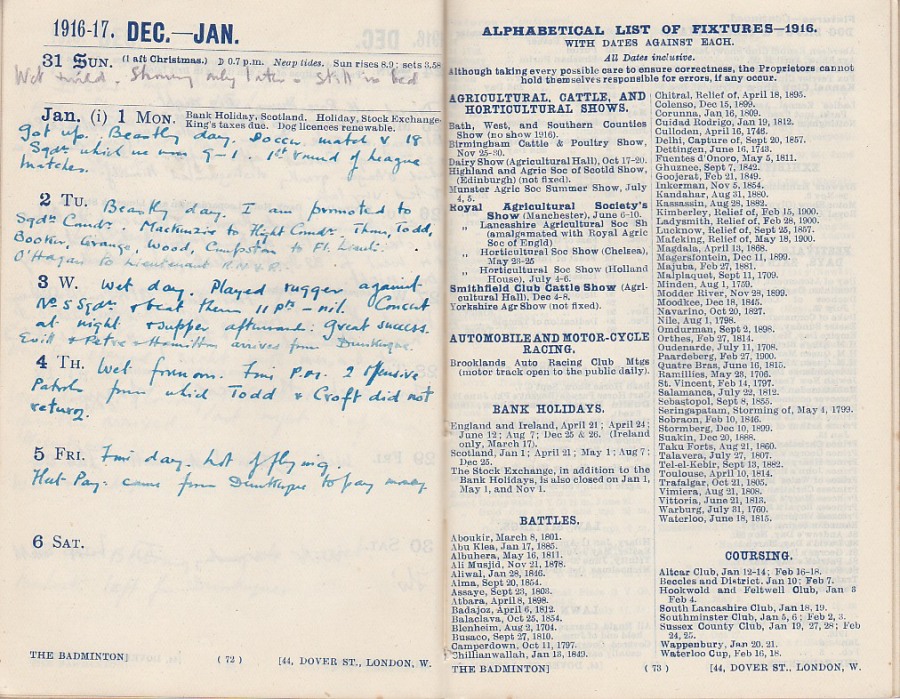 1916-17. DEC.—JAN.
31 SUN. (1 aft Christmas.) D 0.7 p.m. Neap tides. Sun rises 8.9; sets 3.58
Wet mild. Showing only later & still in bed
Jan. (i) 1 MON. Bank Holiday, Scotland. Holiday, Stock Exchange.
King's taxes due. Dog licences renewable.
Got up. Beastly day. Soccer match v 18
Sqdn which we won 9-1. 1st round of league
matches.
2 TU. Beastly day. I am promoted to
Sqdn Comdr. Mackenzie to Flight Comdr. Thom, Todd,
Booker, Grange, Wood, Compston to Fl. Lieut:
O'Hagan to Lieutenant R.N.V.R.
3 W. Wet day. Played rugger against
No 5 Sqdn & beat them 11 pts - nil. Concert
at night & supper afterward: Great success.
Evill & Petre & Hamilton arrives from Dunkirque.
4 TH. Wet forenoon. Fine p.m. 2 offensive
Patrols from which Todd & Croft did not
return.
5 FRI. Fine day. Lot of flying.
Flut Pay: came from Dunkirque to pay money
6 SAT.
THE BADMINTON] (72) [44, DOVER ST., LONDON, W.
ALPHABETICAL LIST OF FIXTURES—1916.
WITH DATES AGAINST EACH.
All Dates inclusive.
Although taking every possible care to ensure correctness, the Proprietors cannot
hold themselves responsible for errors, if any occur.
AGRICULTURAL, CATTLE, AND
HORTICULTURAL SHOWS.
Bath, West, and Southern Counties
Show (no show 1916).
Birmingham Cattle & Poultry Show,
Nov 25-30.
Dairy Show (Agricultural Hall), Oct 17-20.
Highland and Agric Soc of Scotld Show,
(Edinburgh) (not fixed).
Munster Agric Soc Summer Show, July
4, 5.
Royal Agricultural Society's
Show (Manchester), June 6-10.
„ Lancashire Agricultural Soc Sh
(amalgamated with Royal Agric
Soc of Engld)
„ Horticultural Soc Show (Chelsea),
May 23-25
„ Horticultural Soc Show (Holland
House), July 4-6.
Smithfield Club Cattle Show (Agri-
cultural Hall), Dec 4-8.
Yorkshire Agr Show (not fixed).
AUTOMOBILE AND MOTOR-CYCLE
RACING.
Brooklands Auto Racing Club Mtgs
(motor track open to the public daily).
BANK HOLIDAYS.
England and Ireland, April 21; April 24;
June 12; Aug 7; Dec 25 & 26. (Ireland
only, March 17).
Scotland, Jan 1; April 21; May 1; Aug 7;
Dec 25.
The Stock Exchange, in addition to the
Bank Holidays, is also closed on Jan 1,
May 1, and Nov 1.
BATTLES.
Aboukir, March 8, 1801.
Abu Klea, Jan 17, 1885.
Albuhera, May 16, 1811.
Ali Musjid, Nov 21, 1878.
Aliwal, Jan 28, 1846.
Alma, Sept 20, 1854.
Assaye, Sept 23, 1803.
Atbara, April 8, 1898.
Badajoz, April 6, 1812.
Balaclava, Oct 25, 1854.
Blenheim, Aug 2, 1704.
Busaco, Sept 27, 1810.
Camperdown, Oct 11, 1797.
Chillianwallah, Jan 13, 1849.
Chitral, Relief of, April 18, 1895.
Colenso, Dec 15, 1899.
Corunna, Jan 16, 1809.
Cuidad Rodrigo, Jan 19, 1812.
Culloden, April 16, 1746.
Delhi, Capture of, Sept 20, 1857.
Dettingen, June 16, 1743.
Fuentes d'Onoro, May 5, 1811.
Ghuznee, Sept 7, 1842.
Goojerat, Feb 21, 1849.
Inkerman, Nov 5, 1854.
Kandahar, Aug 31, 1880.
Kassassin, Aug 28, 1882.
Kimberley, Relief of, Feb 15, 1900.
Ladysmith, Relief of, Feb 28, 1900.
Lucknow, Relief of, Sept 25, 1857.
Mafeking, Relief of, May 18, 1900.
Magdala, April 13, 1868.
Magersfontein, Dec 11, 1899.
Majuba, Feb 27, 1881.
Malplaquet, Sept 11, 1709.
Minden, Aug 1, 1759.
Modder River, Nov 28, 1899.
Moodkee, Dec 18, 1845.
Navarino, Oct 20, 1827.
Nile, Aug 1, 1798.
Omdurman, Sept 2, 1898.
Orthes, Feb 27, 1814.
Oudenarde, July 11, 1708.
Paardeberg, Feb 27, 1900.
Quatre Bras, June 16, 1815.
Ramillies, May 23, 1706.
St. Vincent, Feb 14, 1797.
Salamanca, July 22, 1812.
Sebastopol, Sept 8, 1855.
Seringapatam, Storming of, May 4, 1799.
Sobraon, Feb 10, 1846.
Stormberg, Dec 10, 1899.
Suakin, Dec 20, 1888.
Taku Forts, Aug 21, 1860.
Talavera, July 27, 1807.
Tel-el-Kebir, Sept 13, 1882.
Toulouse, April 10, 1814.
Trafalgar, Oct 21, 1805.
Vimiera, Aug 21, 1808.
Vittoria, June 21, 1813.
Warburg, July 31, 1760.
Waterloo, June 18, 1815.
COURSING.
Altcar Club, Jan 12-14; Feb 16-18.
Beccles and District, Jan 10; Feb 7.
Hookwold and Feltwell Club, Jan 3
Feb 4.
South Lancashire Club, Jan 18, 19.
Southminster Club, Jan 5, 6; Feb 2, 3.
Sussex County Club, Jan 19, 27, 28; Feb
24, 25.
Wappenbury, Jan 20, 21.
Waterloo Cup, Feb 16, 18.
THE BADMINTON] (73) [44, DOVER ST., LONDON, W.